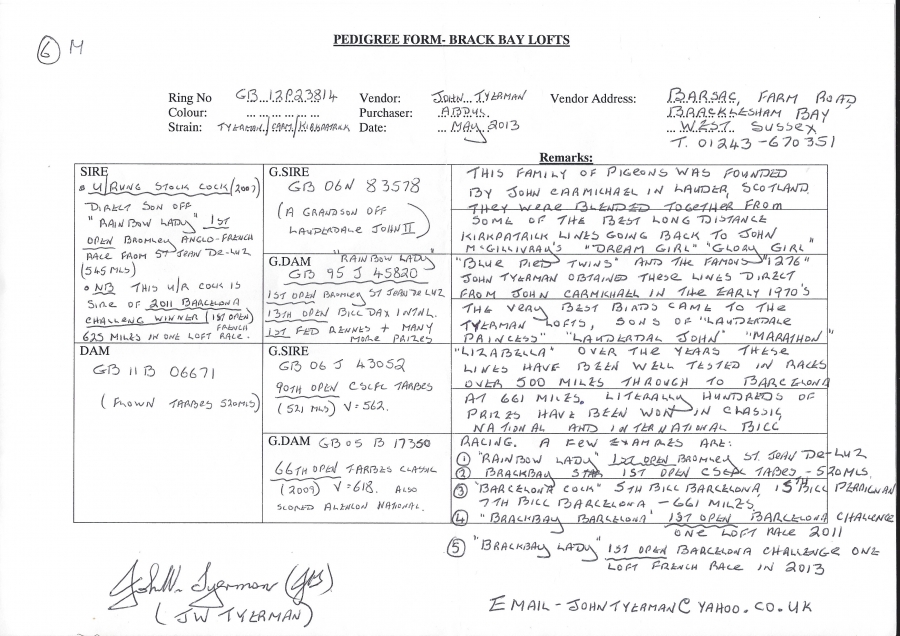 6 M
PEDIGREE FORM- BRACK BAY LOFTS
Ring No GB 12P23814
Colour: ... ... ... ...
Strain: TYERMAN/CARM/KIRKPATRICK
Vendor: JOHN TYERMAN
Purchaser: ABDUL
Date: ... MAY 2013
Vendor Address: BARSAC, FARM ROAD,
BRACKLESHAM BAY
WEST. SUSSEX
T. 01243-670351
SIRE
• U/RUNG STOCK COCK/(2007)
DIRECT SON OFF
"RAINBOW LADY" 1ST
OPEN BROMLEY ANGLO-FRENCH
RACE FROM ST JEAN DE-LUZ
(545 MLS)
• NB THIS U/R COCK IS
SIRE OF 2011 BARCELONA
CHALLENG WINNER (1ST OPEN)
FRENCH
625 MILES IN ONE LOFT RACE.
G.SIRE
GB 06N 83578
(A GRANDSON OFF
LAUDERDALE JOHN II)
G.DAM "RAINBOW LADY"
GB 95 J 45820
1ST OPEN BROMLEY ST JEAN DE LUZ
13TH OPEN BICC DAX INTNL.
1ST FED RENNES + MANY
MORE PRIZES
DAM
GB 11 B 06671
(FLOWN TARBES 520MLS)
G.SIRE
GB 06 J 43052
90TH OPEN CSCFC TARBES
(521 MLS) V=562.
G.DAM GB 05 B 17350
66TH OPEN TARBES CLASSIC
(2009) V=618. ALSO
SCORED ALENCON NATIONAL.
Remarks:
THIS FAMILY OF PIGEONS WAS FOUNDED
BY JOHN CARMICHAEL IN LAUDER, SCOTLAND.
THEY WERE BLENDED TOGETHER FROM
SOME OF THE BEST LONG DISTANCE
KIRKPATRICK LINES GOING BACK TO JOHN
McGILLIVRAY'S "DREAM GIRL" "GLORY GIRL"
"BLUE PIED TWINS" AND THE FAMOUS "1276"
JOHN TYERMAN OBTAINED THESE LINES DIRECT
FROM JOHN CARMICHAEL IN THE EARLY 1970'S
THE VERY BEST BIRDS CAME TO THE
TYERMAN LOFTS, SONS OF "LAUDERDALE
PRINCESS" "LAUDERDAL JOHN" "MARATHON"
"LIZABELLA" OVER THE YEARS THESE
LINES HAVE BEEN WELL TESTED IN RACES
OVER 500 MILES THROUGH TO BARCELONA
AT 661 MILES. LITERALLY HUNDREDS OF
PRIZES HAVE BEEN WON IN CLASSIC
NATIONAL AND INTERNATIONAL BICC
RACING. A FEW EXAMPLES ARE:
1 "RAINBOW LADY" 1ST OPEN BROMLEY ST. JEAN DE-LUZ
2 BRACKBAY 1ST OPEN TABES - 520MLS.
3 "BARCELONA COCK" 5TH BICC BARCELONA, 15TH BICC PERPIGNAN
7TH BICC BARCELONA - 661 MILES,
4 "BRACKBAY BARCELONA' 1ST OPEN BARCELONA CHALLENGE
ONE LOFT RACE 2011
5 "BRACKBAY LADY" 1ST OPEN BARCELONA CHALLENGE ONE
LOFT FRENCH RACE IN 2013
John W. Tyerman
(JW TYERMAN)
EMAIL - JOHNTYERMAN@YAHOO.CO.UK